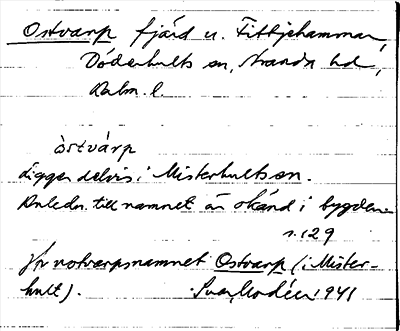 Ostvarp fjärd u. Fittjehammar,
Döderhults sn, Stranda hd,
Kalm. l.
òstvárp
Ligger delvis i Misterhults sn.
Anledn. till namnet är okänd i bygden
s. 129
Jfr notvarpsnamnet Ostvarp (i Mister-
hult). Svenskodéen 1941